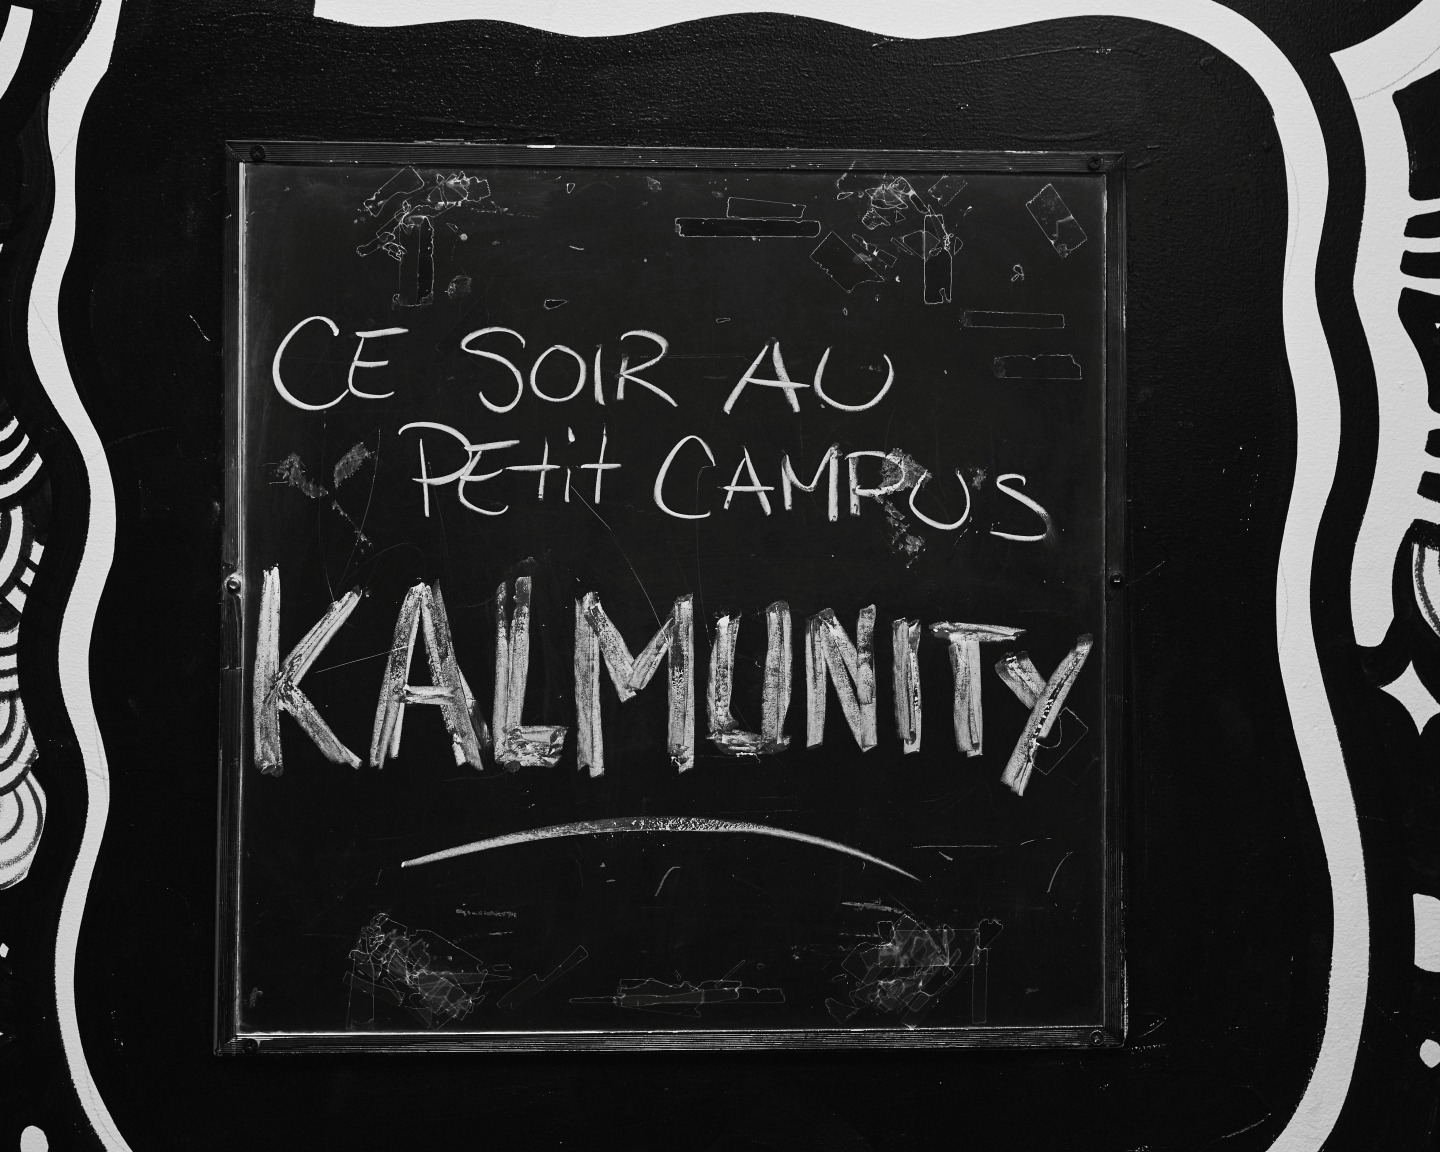 CE SOIR AU
PEtit CAMPUS
KALMUNITY